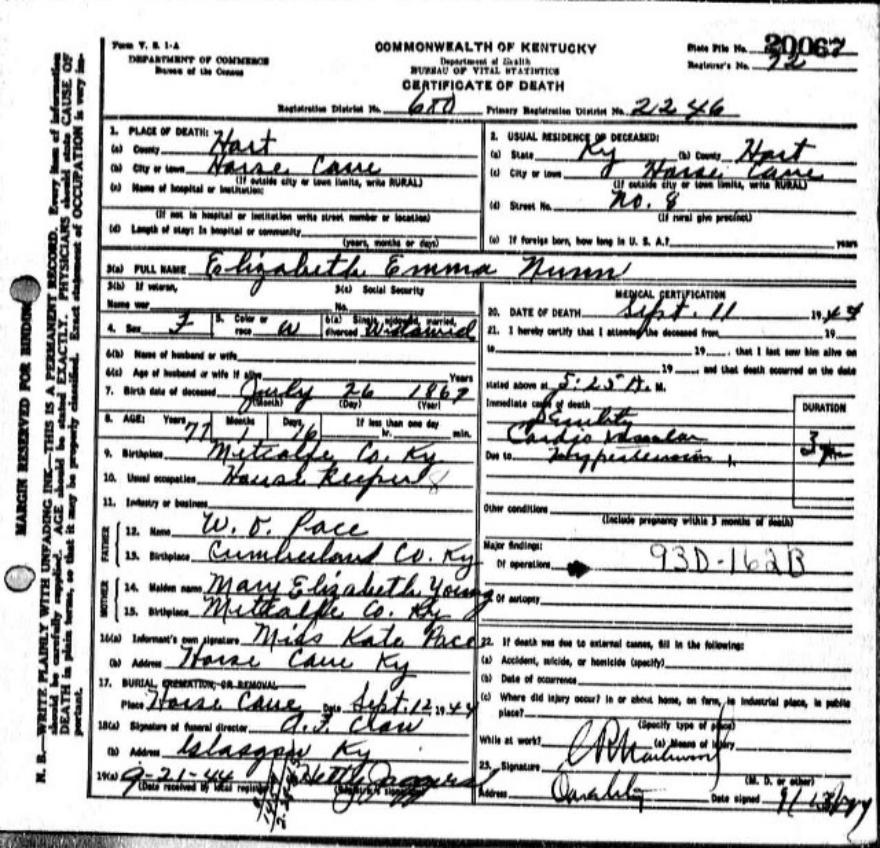 Form V. S. 1-A
DEPARTMENT OF COMMERCE
Bureau of the Census
COMMONWEALTH OF KENTUCKY
Department of Health
BUREAU OF VITAL STATISTICS
CERTIFICATE OF DEATH
State File No. 20067
Registrar's No. 72
Registration District No. 680 Primary Registration District No. 2246
MARGIN RESERVED FOR BINDING
N. B.—WRITE PLAINLY WITH UNFADING INK—THIS IS A PERMANENT RECORD. Every item of information
should be carefully supplied. AGE should be stated EXACTLY. PHYSICIANS should state CAUSE OF
DEATH in plain terms, so that it may be properly classified. Exact statement of OCCUPATION is very im-
portant.
1. PLACE OF DEATH:
(a) County Hart
(b) City or town Horse Cave
(If outside city or town limits, write RURAL)
(c) Name of hospital or institution:
(If not in hospital or institution write street number or location)
(d) Length of stay: In hospital or community
(years, months or days)
2. USUAL RESIDENCE OF DECEASED:
(a) State Ky (b) County Hart
(c) City or town Horse Cave
(If outside city or town limits, write RURAL)
(d) Street No. No. 8
(If rural give precinct)
(e) If foreign born, how long in U. S. A.? years
3(a) FULL NAME Elizabeth Emma Nunn
3(b) If veteran, 3(c) Social Security
Name war No.
4. Sex F 5. Color or race W 6(a) Single, widowed, married, divorced Widowed
6(b) Name of husband or wife
6(c) Age of husband or wife if alive Years
7. Birth date of deceased July 26 1867
(Month) (Day) (Year)
8. AGE: Years 77 Months 1 Days 16 If less than one day hr. min.
9. Birthplace Metcalfe Co. Ky
10. Usual occupation House Keeper 8
11. Industry or business
FATHER
12. Name W. O. Pace
13. Birthplace Cumberland Co. Ky
MOTHER
14. Maiden name Mary Elizabeth Young
15. Birthplace Metcalfe Co. Ky
16(a) Informant's own signature Miss Kate Pace
(b) Address Horse Cave Ky
17. BURIAL, CREMATION, OR REMOVAL
Place Horse Cave Date Sept. 12 1944
18(a) Signature of funeral director A. F. Crow
(b) Address Glasgow Ky
19(a) 9-21-44 Hettie Jaggers
(Date received by local registrar) (Registrar's signature)
MEDICAL CERTIFICATION
20. DATE OF DEATH Sept. 11 1944
21. I hereby certify that I attended the deceased from 19
to 19 , that I last saw him alive on
19 and that death occurred on the date
stated above at 5:25 A. M.
Immediate cause of death
Senility
Cardio Vascular
Due to Hypertension
DURATION
3 yrs
Other conditions
(Include pregnancy within 3 months of death)
Major findings:
Of operations 93D-162B
Of autopsy
22. If death was due to external causes, fill in the following:
(a) Accident, suicide, or homicide (specify)
(b) Date of occurrence
(c) Where did injury occur? In or about home, on farm, in industrial place, in public
place?
(Specify type of place)
While at work? (e) Means of injury
23. Signature
(M. D. or other)
Address Date signed 9/13/44